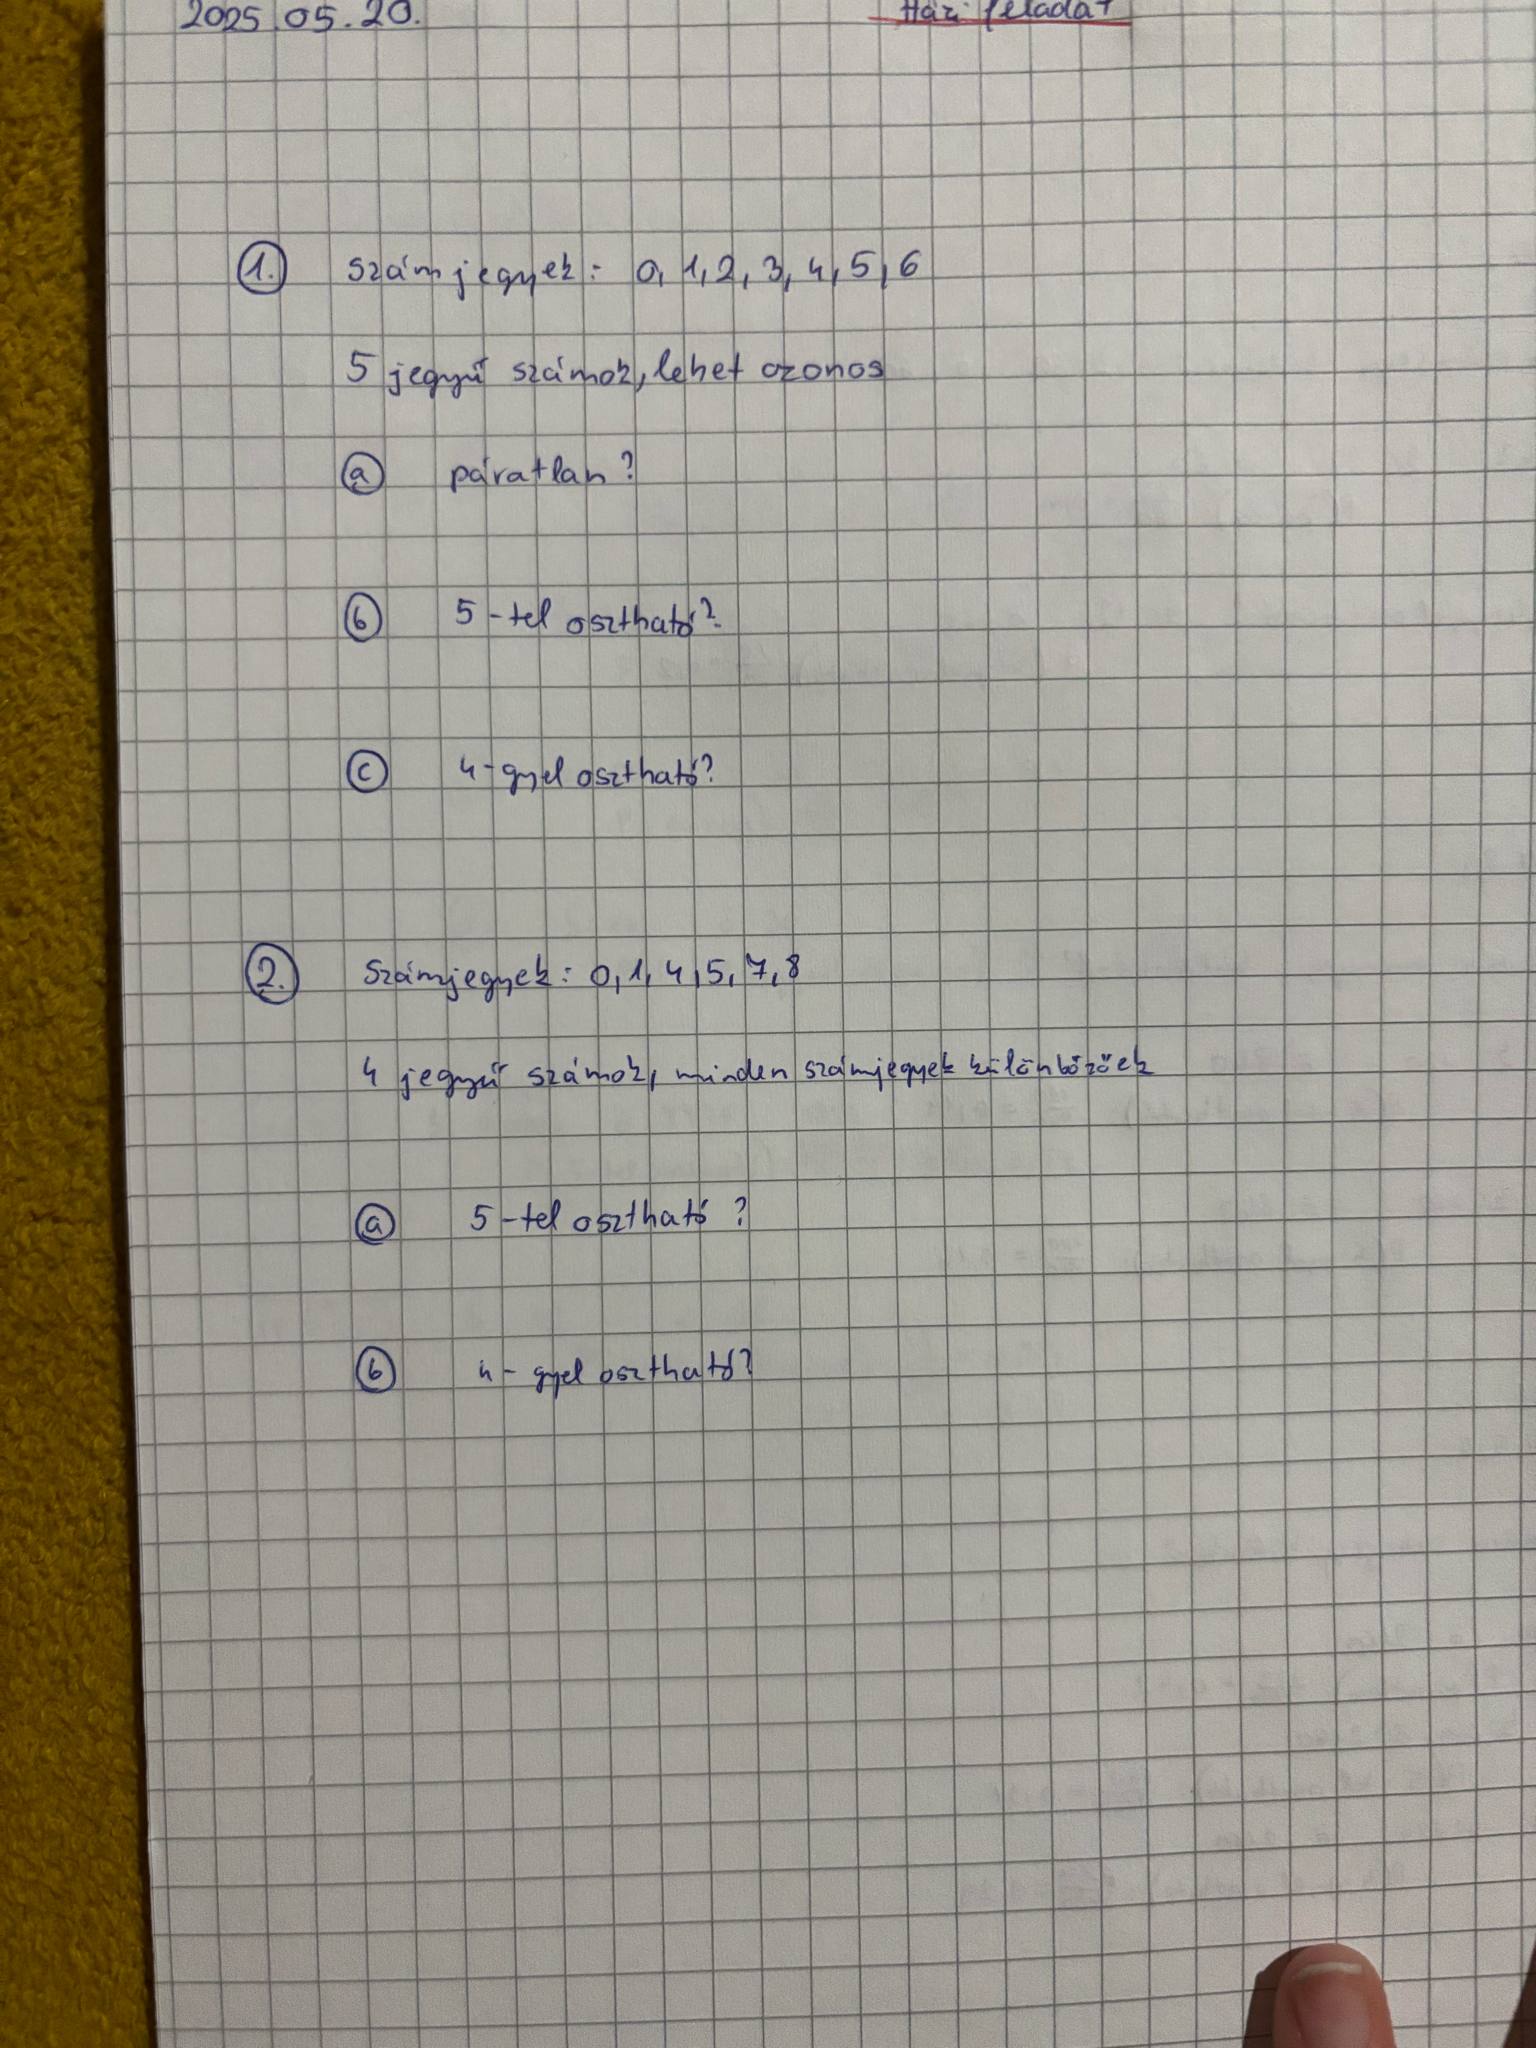 2025.05.20.
Házi feladat
1. Számjegyek: 0, 1, 2, 3, 4, 5, 6
5 jegyű számok, lehet azonos
a páratlan?
b 5-tel osztható?
c 4-gyel osztható?
2. Számjegyek: 0, 1, 4, 5, 7, 8
4 jegyű számok, minden számjegyek különbözőek
a 5-tel osztható?
b 4-gyel osztható?